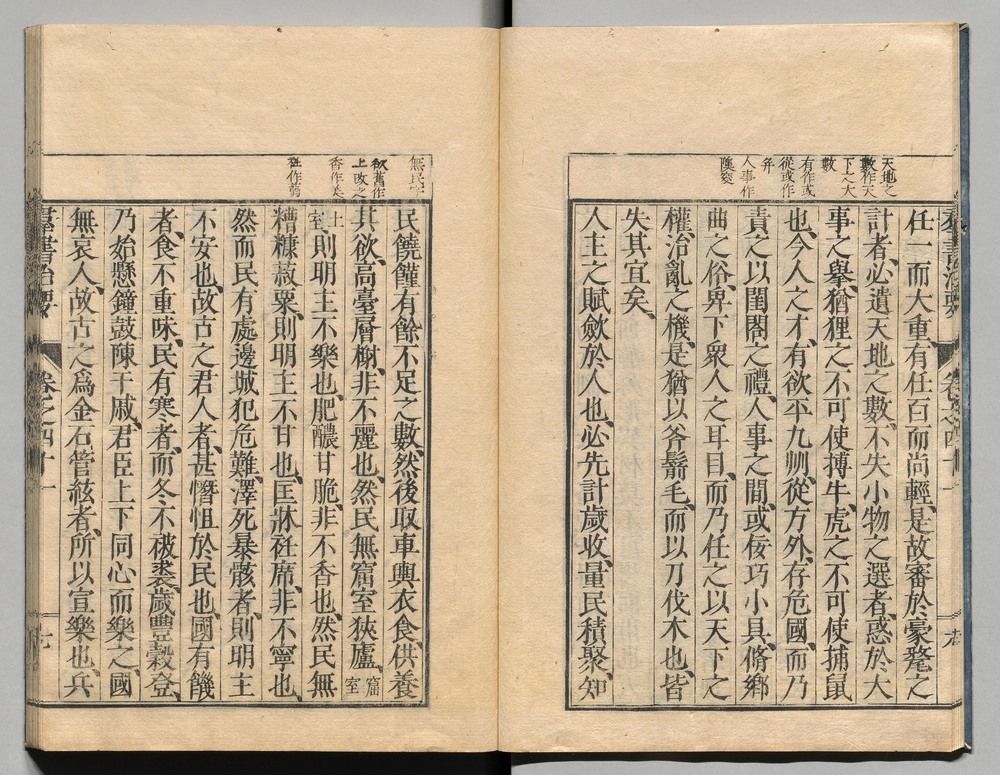 群書治要 卷之四十一
天地之
數作天
下之大
數
有作或
從或作
弁
人事作
隩窔
任一而大重、有任百而尚輕、是故審於豪氂之
計者、必遺天地之數、不失小物之選者、惑於大
事之舉、猶狸之不可使搏牛、虎之不可使捕鼠
也、今人之才、有欲平九州、從方外、存危國、而乃
責之以閨閤之禮、人事之間、或佞巧小具、脩鄉
曲之俗、卑下眾人之耳目、而乃任之以天下之
權、治亂之機、是猶以斧鬋毛、而以刀伐木也、皆
失其宜矣、
人主之賦斂於人也、必先計歲收、量民積聚、知
無民字
欲舊作
上改之
香作美
民饒饉有餘不足之數、然後取車輿衣食、供養
其欲、高臺層榭、非不麗也、然民無窟室狹廬、窟室
土室、則明主不樂也、肥醲甘脆、非不香也、然民無
糟糠菽粟、則明主不甘也、匡牀衽席、非不寧也
然而民有處邊城、犯危難、澤死暴骸者、則明主
不安也、故古之君人者、甚憯怛於民也、國有饑
者、食不重味、民有寒者、而冬不被裘、歲豐穀登、
乃始懸鐘鼓、陳干戚、君臣上下、同心而樂之、國
無哀人、故古之為金石管絃者、所以宣樂也、兵
羣書治要 卷之四十一